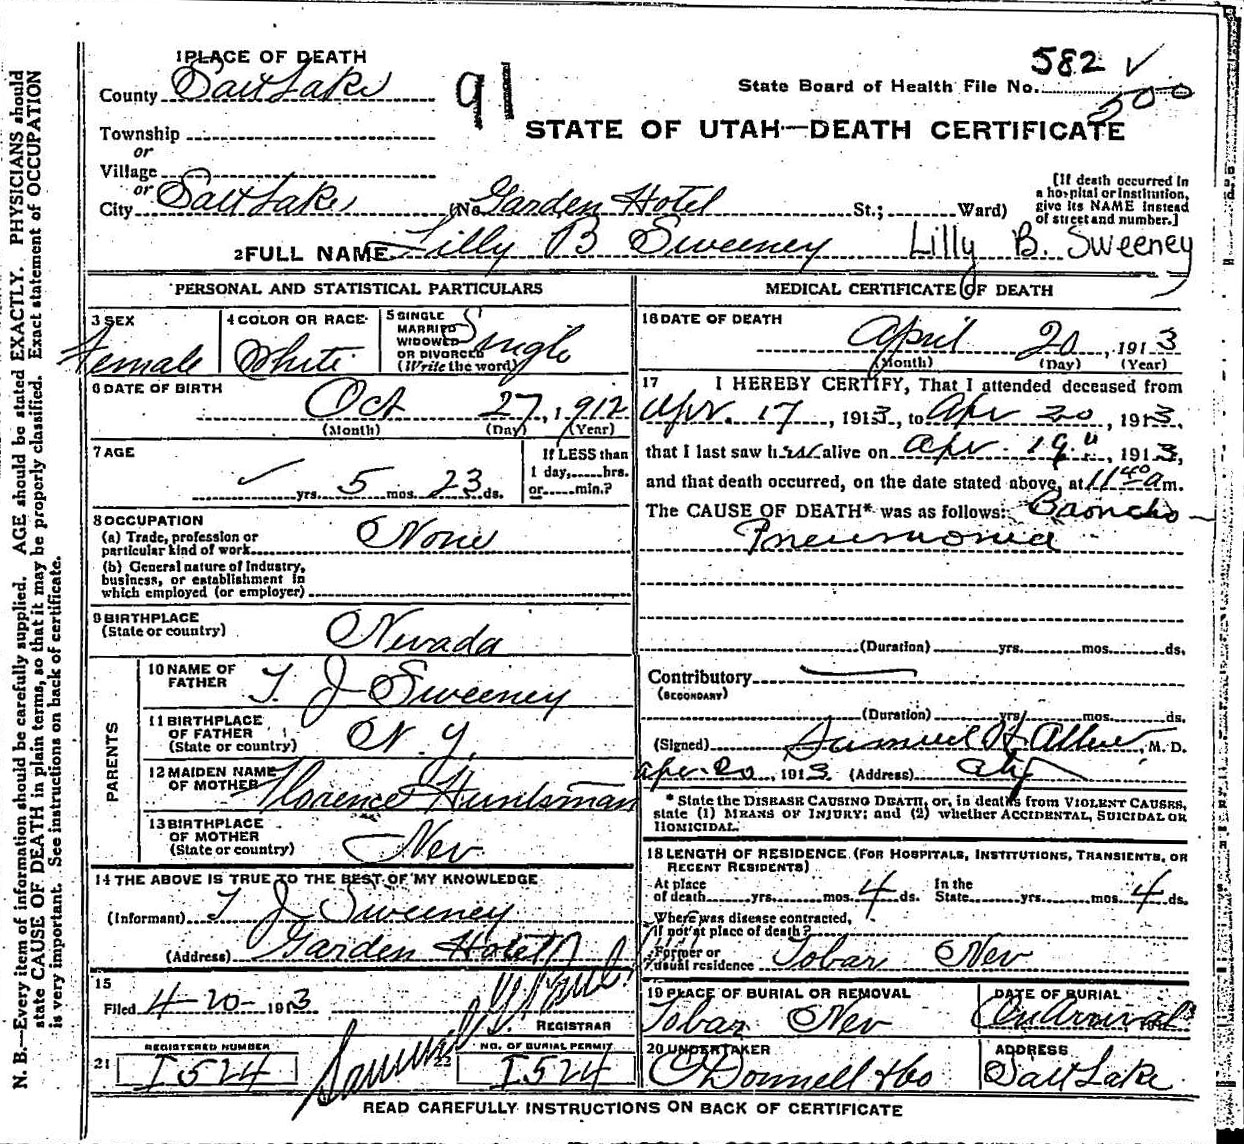 1 PLACE OF DEATH
County Salt Lake
91
582 ✓
State Board of Health File No.
500
STATE OF UTAH—DEATH CERTIFICATE
Township
or
Village
or
City Salt Lake (No. Garden Hotel St.; Ward)
[If death occurred in
a hospital or institution,
give its NAME instead
of street and number.]
2 FULL NAME Lilly B Sweeney Lilly B. Sweeney
PERSONAL AND STATISTICAL PARTICULARS
3 SEX
Female
4 COLOR OR RACE
White
5 SINGLE
MARRIED
WIDOWED
OR DIVORCED
(Write the word)
Single
6 DATE OF BIRTH
Oct 27, 1912
(Month) (Day) (Year)
7 AGE
✓ yrs. 5 mos. 23 ds.
If LESS than
1 day, hrs.
or min.?
8 OCCUPATION
(a) Trade, profession or
particular kind of work
None
(b) General nature of industry,
business, or establishment in
which employed (or employer)
9 BIRTHPLACE
(State or country)
Nevada
PARENTS
10 NAME OF
FATHER
T. J Sweeney
11 BIRTHPLACE
OF FATHER
(State or country)
N. Y.
12 MAIDEN NAME
OF MOTHER
Florence Huntsman
13 BIRTHPLACE
OF MOTHER
(State or country)
Nev
14 THE ABOVE IS TRUE TO THE BEST OF MY KNOWLEDGE
(Informant) T J Sweeney
(Address) Garden Hotel
15
Filed 4-20- 1913
REGISTRAR
21 REGISTERED NUMBER
I 524
22 NO. OF BURIAL PERMIT
I 524
MEDICAL CERTIFICATE OF DEATH
16 DATE OF DEATH
April 20, 1913
(Month) (Day) (Year)
17 I HEREBY CERTIFY, That I attended deceased from
Apr. 17, 1913, to Apr 20, 1913,
that I last saw her alive on Apr. 19", 1913,
and that death occurred, on the date stated above, at 11 40 a m.
The CAUSE OF DEATH* was as follows: Broncho-
Pneumonia
(Duration) yrs. mos. ds.
Contributory
(SECONDARY)
(Duration) yrs. mos. ds.
(Signed) Samuel H. Allen, M. D.
Apr-20, 1913 (Address) City
* State the DISEASE CAUSING DEATH, or, in deaths from VIOLENT CAUSES,
state (1) MEANS OF INJURY; and (2) whether ACCIDENTAL, SUICIDAL OR
HOMICIDAL.
18 LENGTH OF RESIDENCE (FOR HOSPITALS, INSTITUTIONS, TRANSIENTS, OR
RECENT RESIDENTS)
At place
of death yrs. mos. 4 ds.
In the
State yrs. mos. 4 ds.
Where was disease contracted,
if not at place of death?
Former or
usual residence Tobar Nev
19 PLACE OF BURIAL OR REMOVAL
Tobar Nev
DATE OF BURIAL
On Arrival
20 UNDERTAKER
O'Donnell & Co
ADDRESS
Salt Lake
READ CAREFULLY INSTRUCTIONS ON BACK OF CERTIFICATE
N. B.—Every item of information should be carefully supplied. AGE should be stated EXACTLY. PHYSICIANS should
state CAUSE OF DEATH in plain terms, so that it may be properly classified. Exact statement of OCCUPATION
is very important. See instructions on back of certificate.